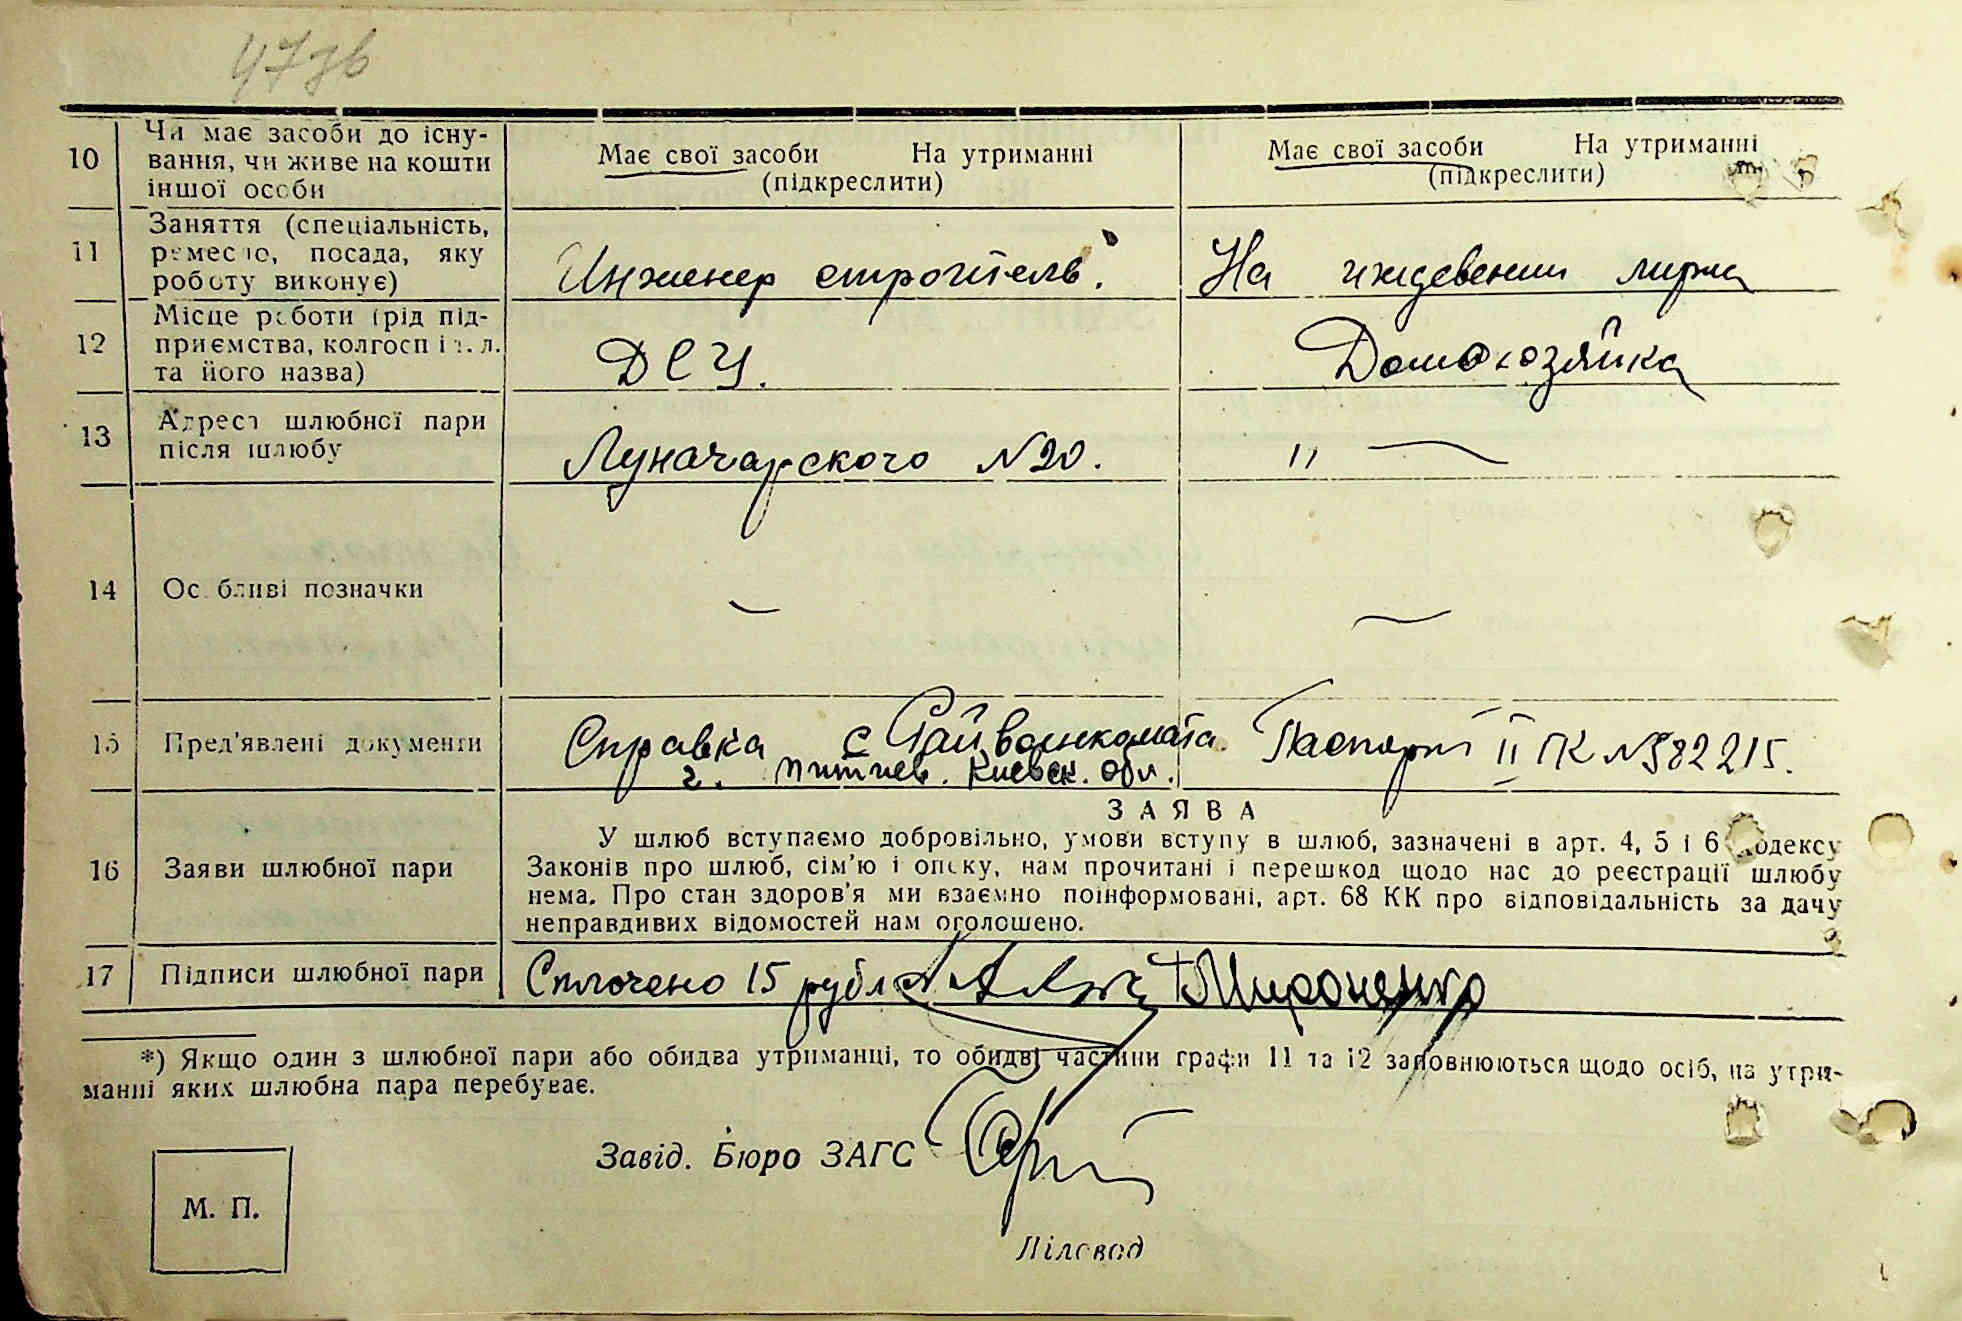 47зв
10
Чи має засоби до існу-
вання, чи живе на кошти
іншої особи
Має свої засоби На утриманні
(підкреслити)
Має свої засоби На утриманні
(підкреслити)
11
Заняття (спеціальність,
ремесло, посада, яку
роботу виконує)
Инженер строитель.
На иждевении мужа
12
Місце роботи (рід під-
приємства, колгосп і т. л.
та його назва)
ДСУ.
Домохозяйка
13
Адреса шлюбної пари
після шлюбу
Луначарского №20.
〃 —
14
Особливі позначки
—
—
15
Пред'явлені документи
Справка с Райвоенкомата
г. Киевск. обл.
Паспорт II ПК №582215.
16
Заяви шлюбної пари
ЗАЯВА
У шлюб вступаємо добровільно, умови вступу в шлюб, зазначені в арт. 4, 5 і 6 Кодексу
Законів про шлюб, сім'ю і опіку, нам прочитані і перешкод щодо нас до реєстрації шлюбу
нема. Про стан здоров'я ми взаємно поінформовані, арт. 68 КК про відповідальність за дачу
неправдивих відомостей нам оголошено.
17
Підписи шлюбної пари
Сплочено 15 рубл Мироненко
*) Якщо один з шлюбної пари або обидва утриманці, то обидві частини графи 11 та 12 заповнюються щодо осіб, на утри-
манні яких шлюбна пара перебуває.
Завід. Бюро ЗАГС
М. П.
Діловод